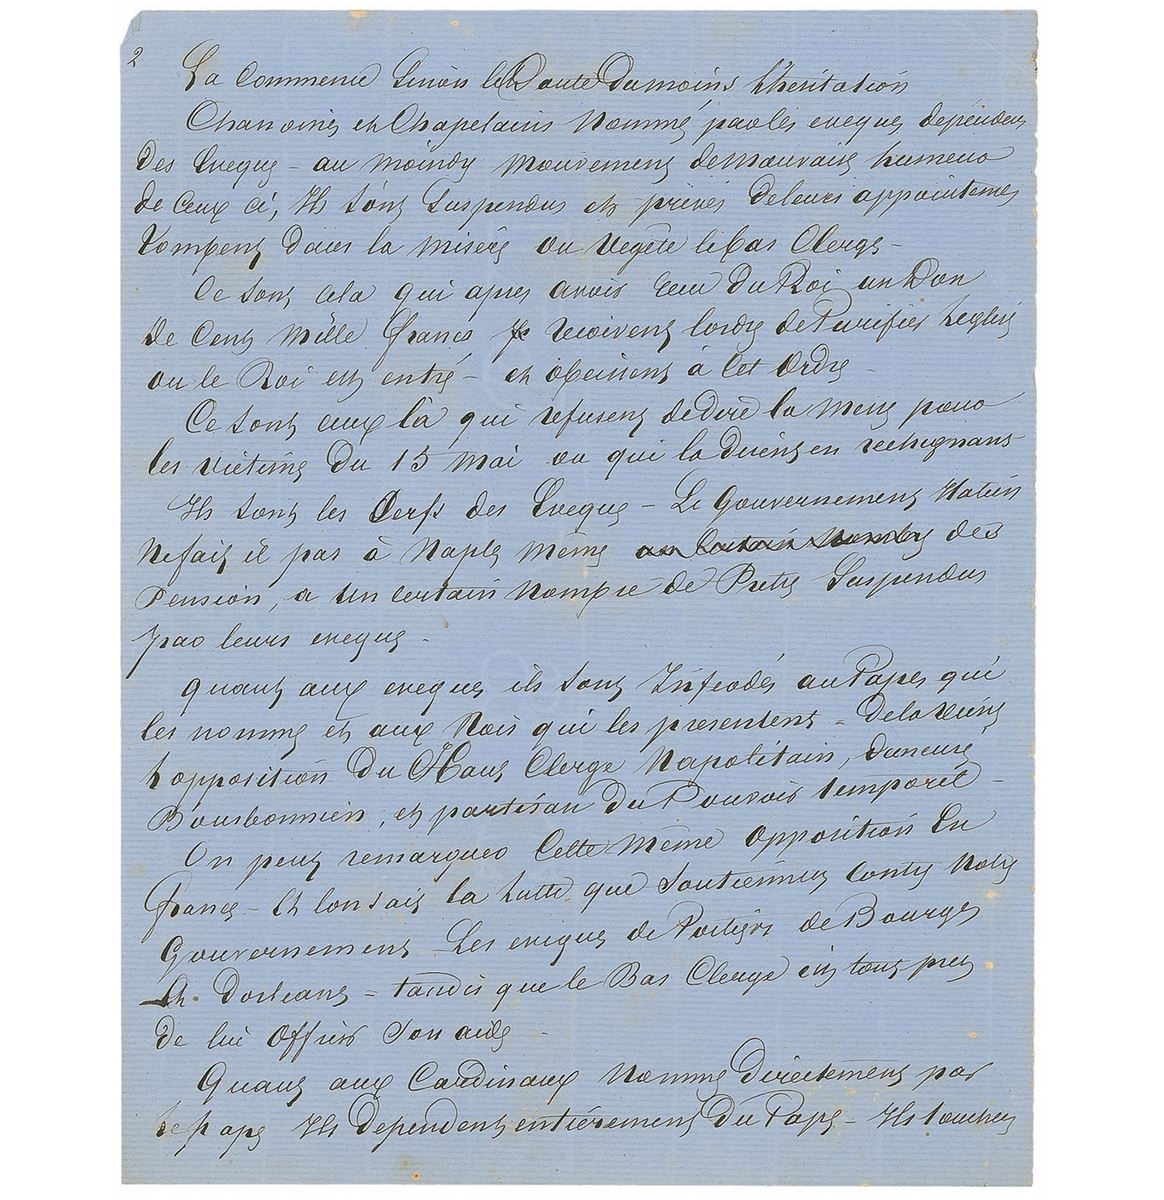 2
La commence Sinon le Doute Du moins L'hesitation
Chanoines et Chapelains Nommé par les eveques dependens
Des Eveque - au moindre mouvement de mauvaise humeur
de ceux ci, Ils sont Suspendus et privés de leurs appointemes
tombent dans la misère ou vegete le bas Clerge -
Ce sont cela qui apres avoir recu du Roi un Don
De Cent Mille francs recoivent lordre de Purifier Leglise
ou le Roi est entré - et obeissent à Cet Ordre -
Ce sont ceux là qui refusent de dire la messe pour
les victimes Du 15 Mai ou qui la disent en rechignans -
Ils sont les Cerfs des Eveque - Le Gouvernement Italien
Ne fait il pas à Naples même un certain nombre des
Pension, a un certain nombre de Pretres Suspendus
par leurs eveque -
Quant aux eveques ils sont Inféodés au Papes qui
les nomme et aux Rois qui les presentent - De la vient
lopposition Du Haut Clerge Napolitain, Demeuré
Bourbonnien, et partisan du Pouvoir temporel -
On peut remarquer Cette même opposition En
France - Et lon sait la lutte que soutiennent Contre Notre
Gouvernement Les eveques de Poitiers de Bourges
Et Dorleans - tandis que le Bas Clerge est tout pret
de lui Offrir Son aide -
Quant aux Cardinaux Nommé Directement par
le pape Ils dependent entiérement Du Pape - Ils touchent